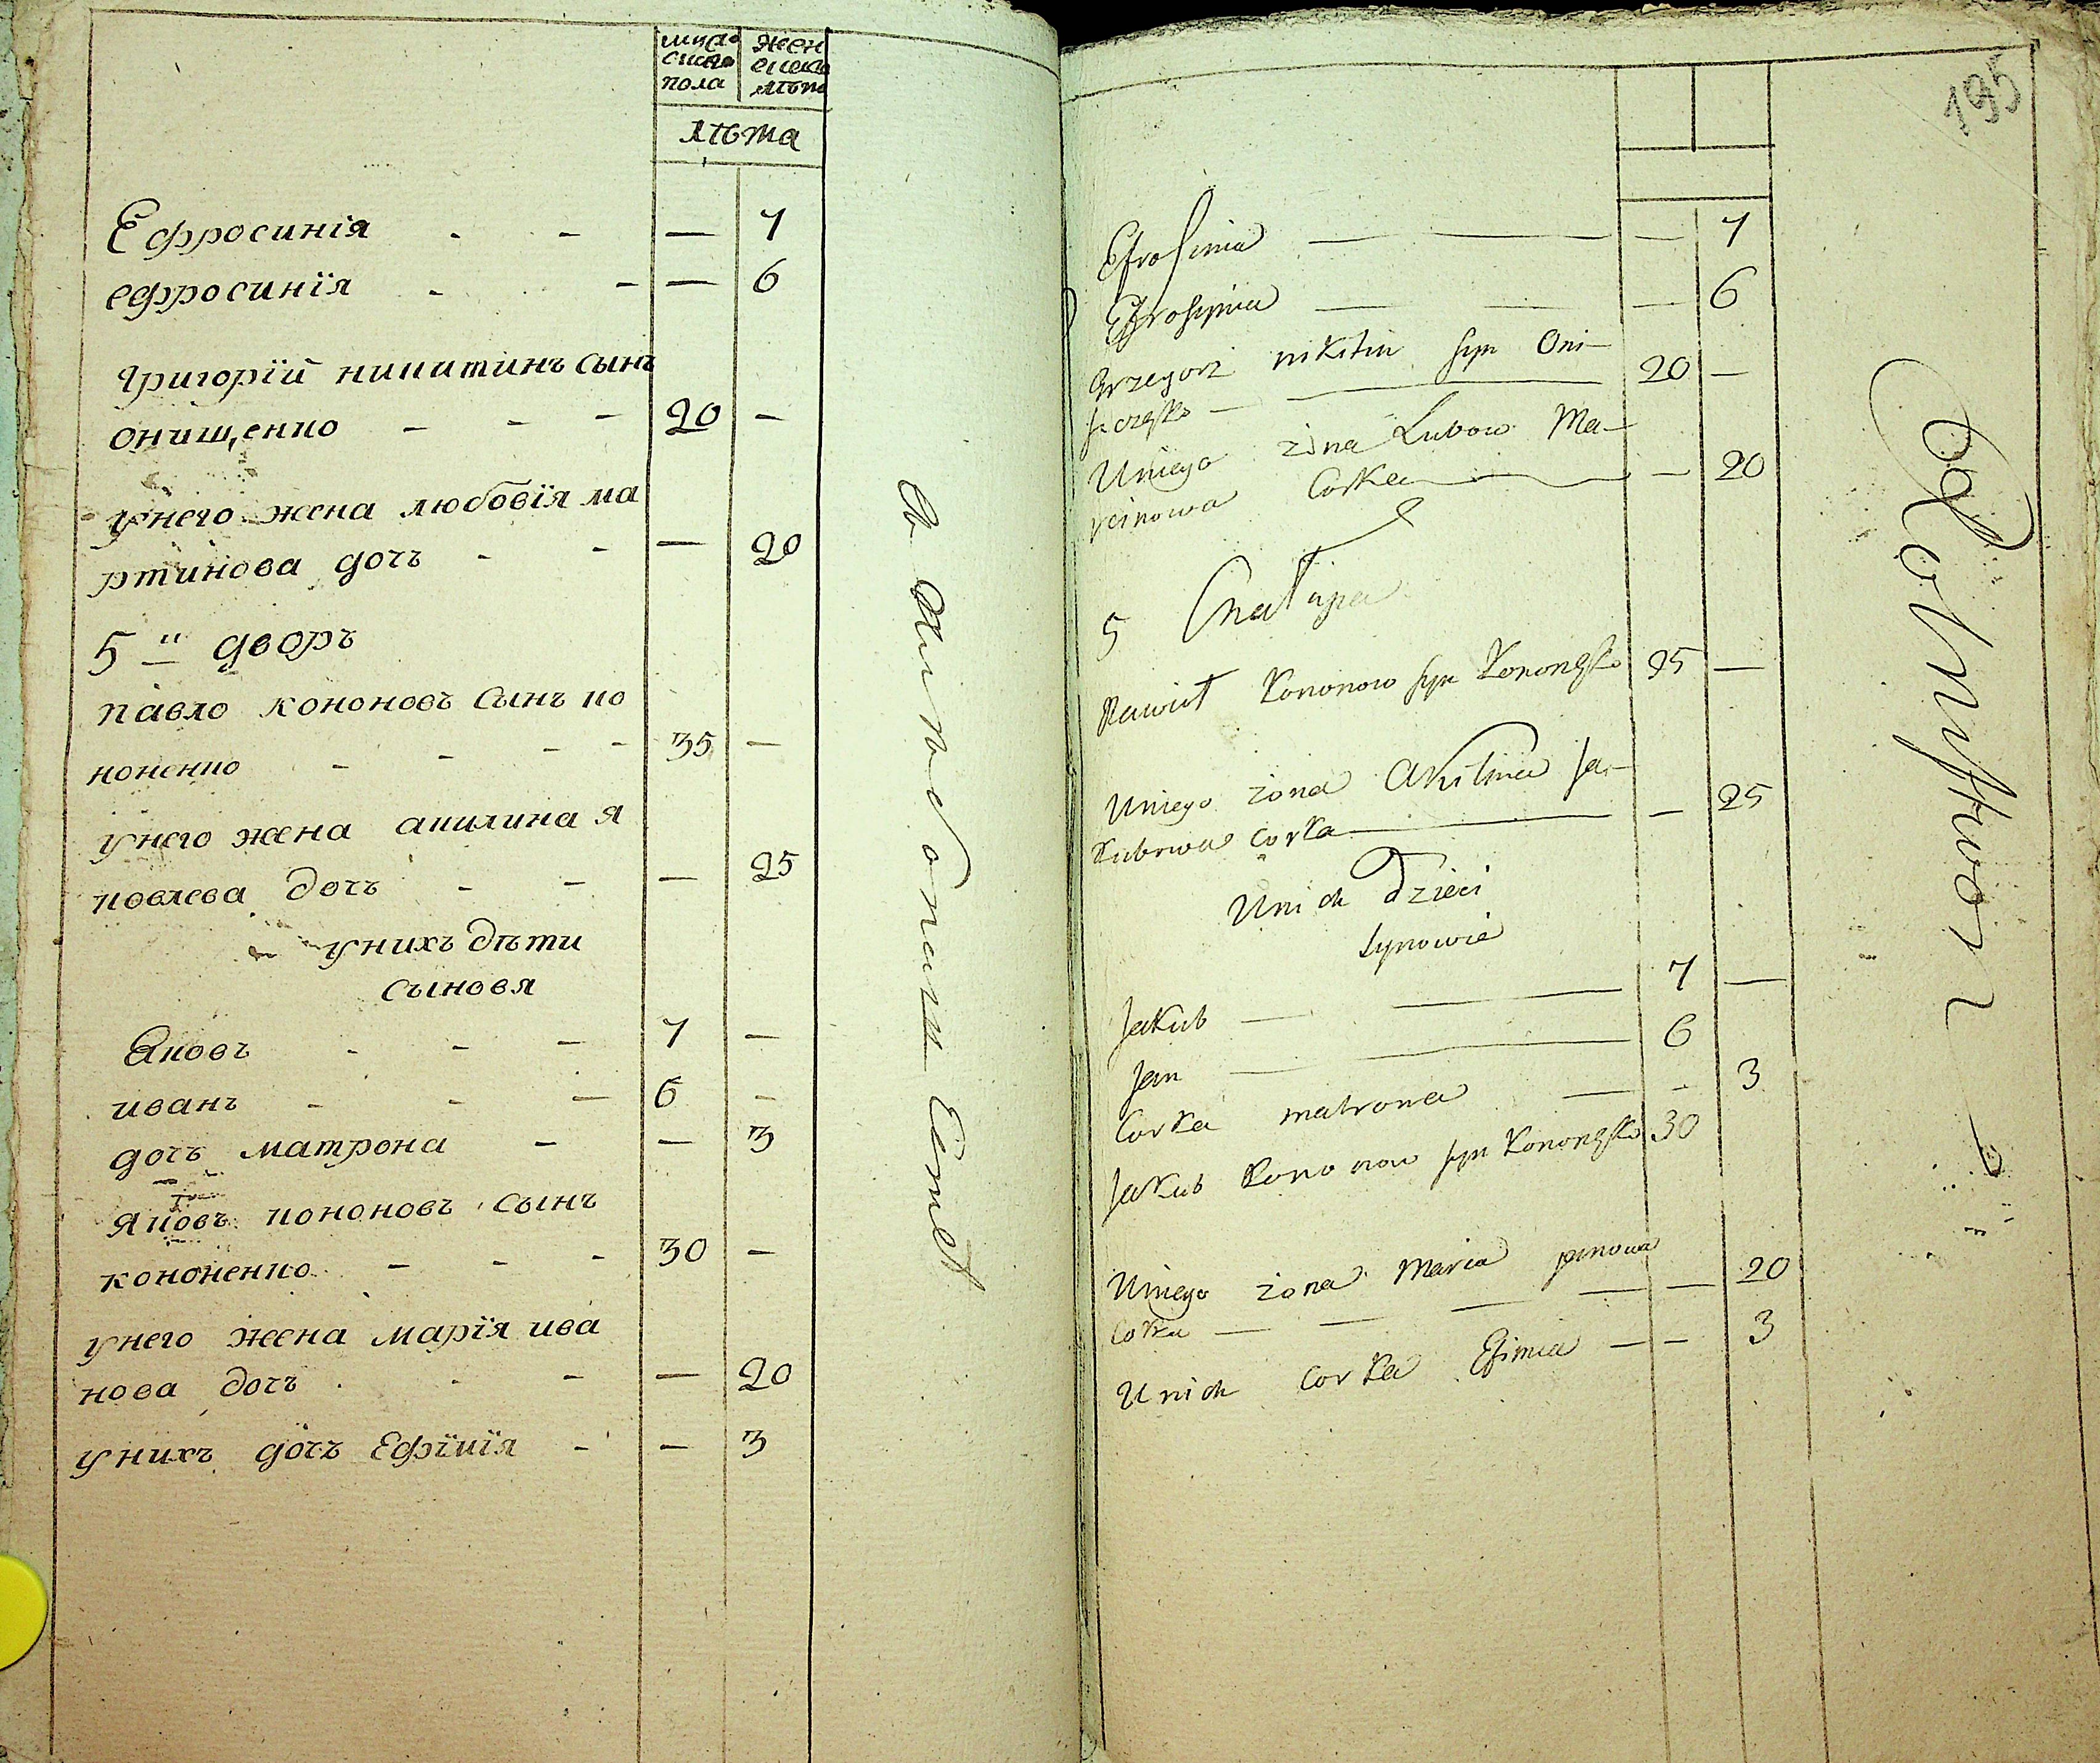 муж жен
ска ска
пола лѣта
лѣта
Ефросинія - - — 7
ефросинїя - - — 6
Григорїй никитинъ сынъ
онищенко - - - 20 —
унего жена любовїя ма
ртинова дочь - - — 20
5 й дворъ
павло кононовъ сынъ ко
ноненко - - - - 35 —
унего жена акилина я
ковлева дочь - - — 25
унихъ дѣти
сыновя
Яковъ - - - 7 —
иванъ - - - 6 —
дочь матрона - — 3
Яковъ кононовъ сынъ
кононенко - - - 30 —
унего жена марїя ива
нова дочь - - - — 20
унихъ дочь Ефїмїя - — 3
195
Efrosinia — — — 7
Efrosynia — — — 6
Grzegorz nikitin syn Oni-
szczęko — — 20 —
Uniego żona Lubow Ma-
rcinowa Corka — — 20
5 Chałupa
Pawioł Kononow syn Kononęko 35 —
Uniego żona Akilina Ja-
kubowa Corka — — 25
Unich Dzieci
Synowie
Jakub — — 7 —
Jan — — 6
Corka matrona — - 3
Jakub Kononow syn Kononęko 30
Uniego żona Maria janowa
Corka — — — — — 20
Unich Corka Efimia — — 3